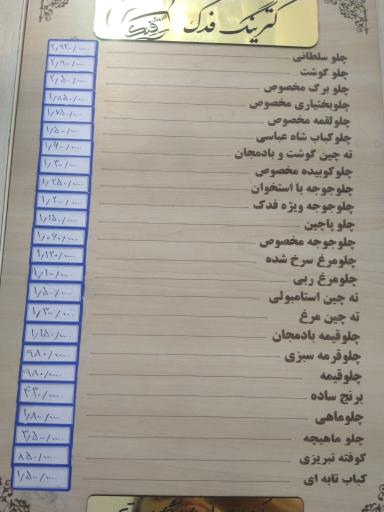 کترینگ فدک فدک
چلو سلطانی ۲/۹۲۰/۰۰۰
چلو گوشت ۲/۹۰۰/۰۰۰
چلو برگ مخصوص ۲/۵۰۰/۰۰۰
چلوبختیاری مخصوص ۱/۸۵۰/۰۰۰
چلولقمه مخصوص ۱/۷۵۰/۰۰۰
چلوکباب شاه عباسی ۱/۵۰۰/۰۰۰
ته چین گوشت و بادمجان ۱/۶۰۰/۰۰۰
چلوکوبیده مخصوص ۱/۳۰۰/۰۰۰
چلوجوجه با استخوان ۱/۳۵۰/۰۰۰
چلوجوجه ویژه فدک ۱/۲۰۰/۰۰۰
چلو پاچین ۱/۱۵۰/۰۰۰
چلوجوجه مخصوص ۱/۰۶۰/۰۰۰
چلومرغ سرخ شده ۱/۱۲۰/۰۰۰
چلومرغ ربی ۱/۱۰۰/۰۰۰
ته چین استامبولی ۱/۵۰۰/۰۰۰
ته چین مرغ ۱/۳۰۰/۰۰۰
چلوقیمه بادمجان ۱/۱۵۰/۰۰۰
چلوقرمه سبزی ۹۸۰/۰۰۰
چلوقیمه ۹۸۰/۰۰۰
برنج ساده ۴۳۰/۰۰۰
چلوماهی ۱/۸۰۰/۰۰۰
چلو ماهیچه ۳/۵۰۰/۰۰۰
کوفته تبریزی ۸۵۰/۰۰۰
کباب تابه ای ۱/۵۰۰/۰۰۰